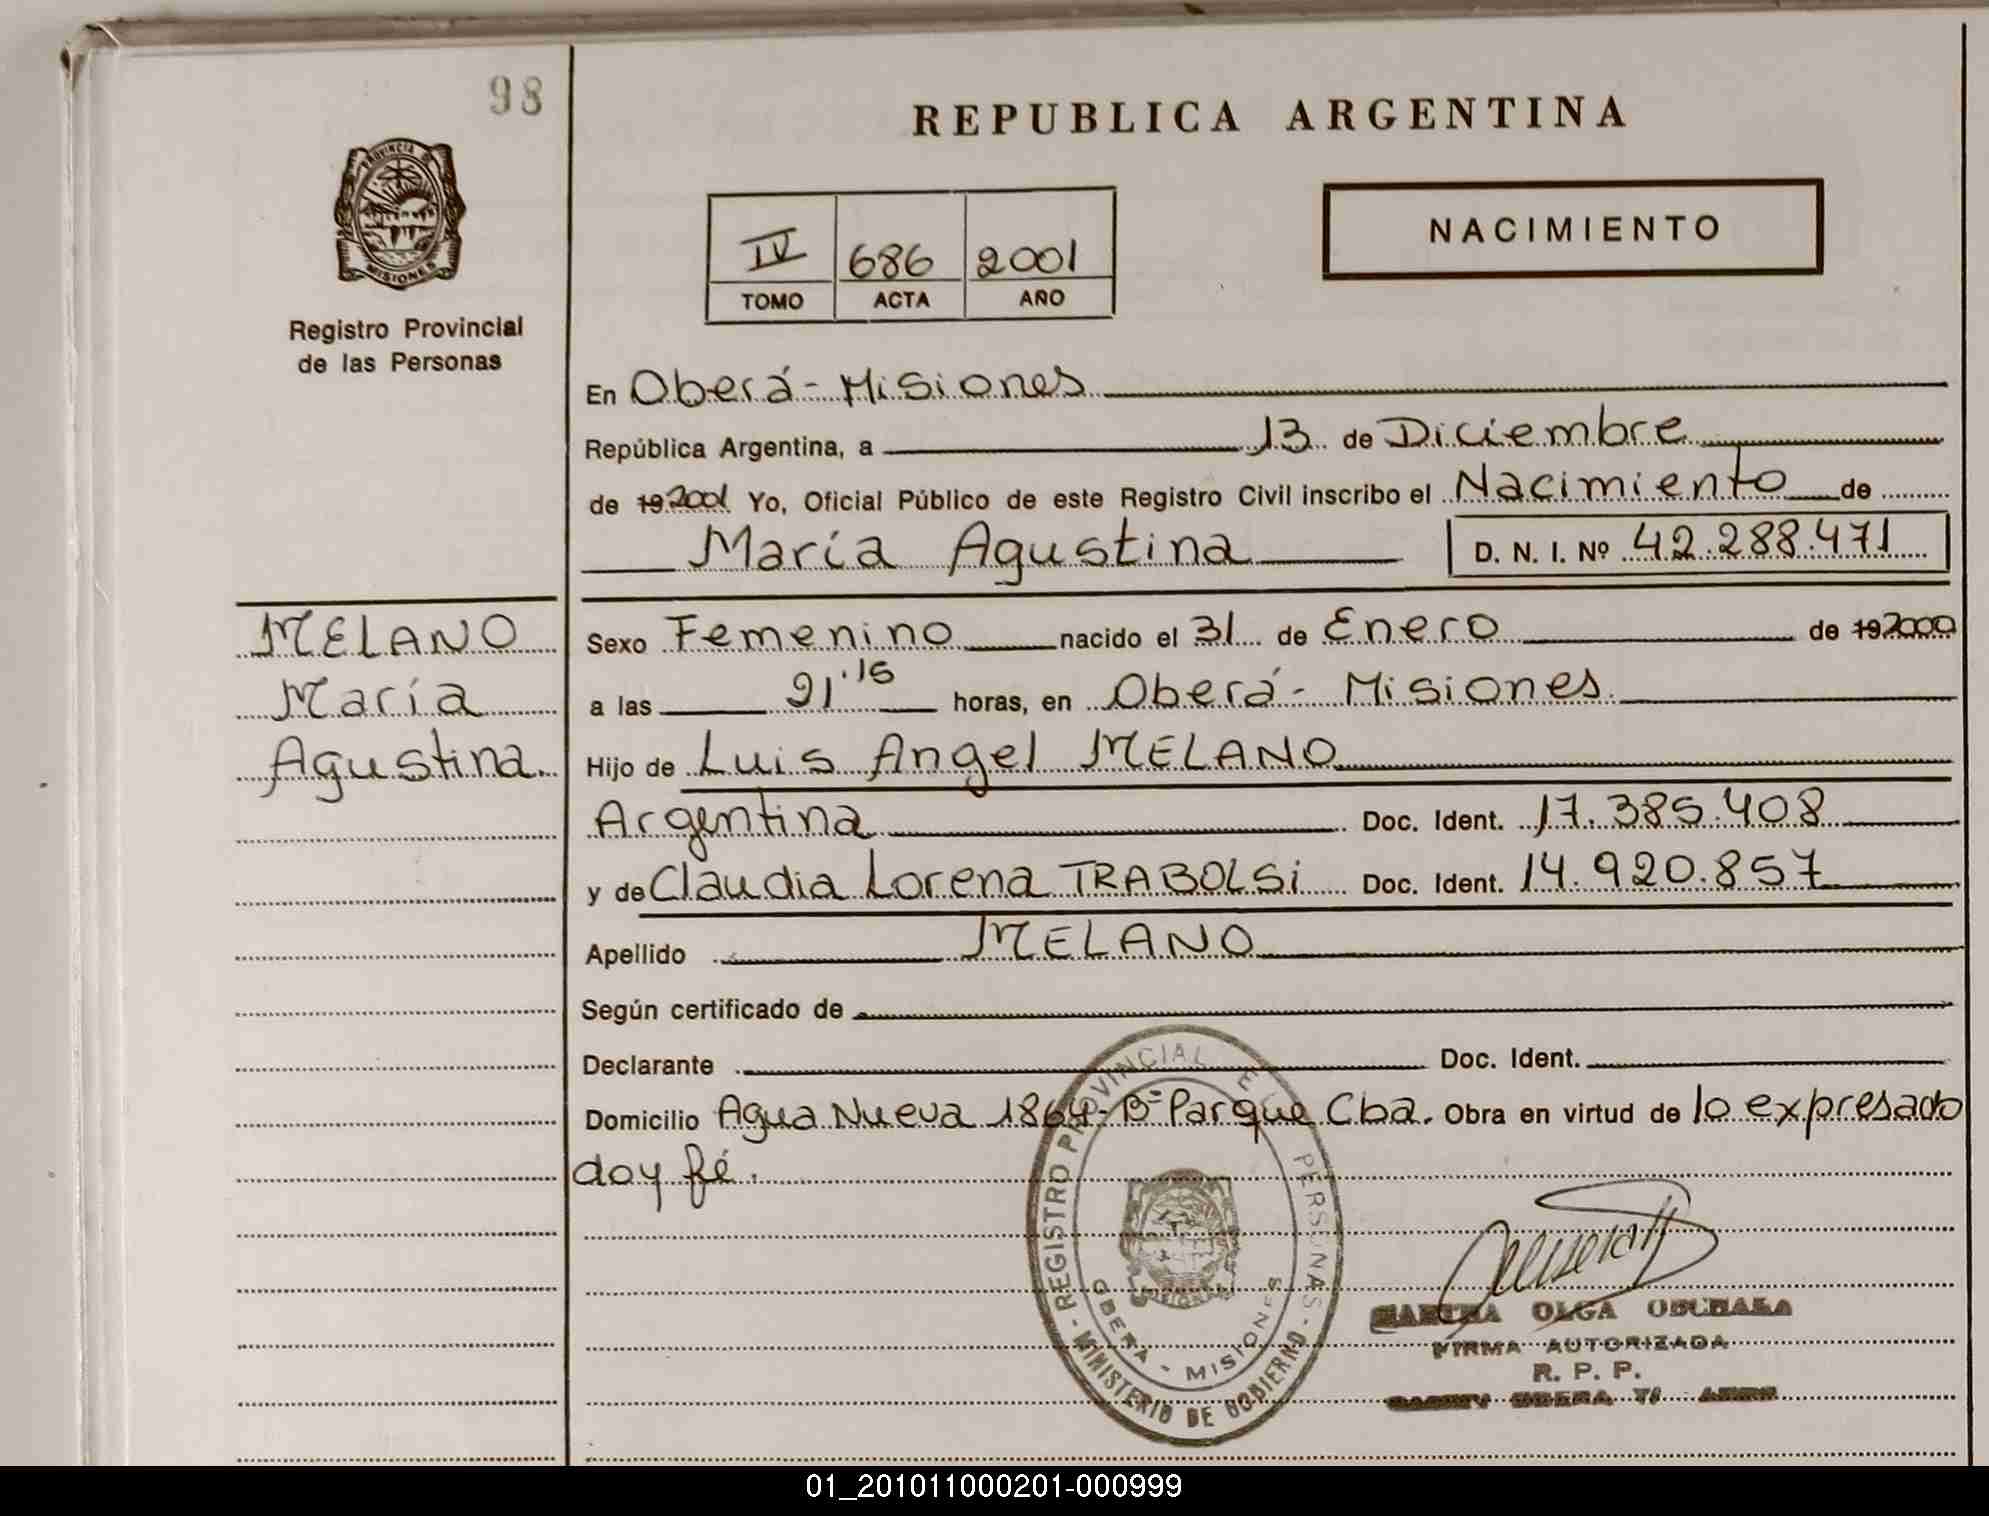 98
PROVINCIA D
MISIONES
Registro Provincial
de las Personas
REPUBLICA ARGENTINA
IV 686 2001
TOMO ACTA AÑO
NACIMIENTO
En Oberá - Misiones
República Argentina, a 13 de Diciembre
de 19 2001 Yo, Oficial Público de este Registro Civil inscribo el Nacimiento de
María Agustina D. N. I. Nº 42.288.471
MELANO
María
Agustina.
Sexo Femenino nacido el 31 de Enero de 19 2000
a las 21'15 horas, en Oberá - Misiones
Hijo de Luis Angel MELANO
Argentina Doc. Ident. 17.385.408
y de Claudia Lorena TRABOLSi Doc. Ident. 14.920.857
Apellido MELANO
Según certificado de
Declarante Doc. Ident.
Domicilio Agua Nueva 1864 - Bº Parque Cba. Obra en virtud de lo expresado
doy fé.
REGISTRO PROVINCIAL PERSONAS
OBERA - MISIONES
MINISTERIO DE GOBIERNO
OLGA
FIRMA AUTORIZADA
R. P. P.
01_201011000201-000999